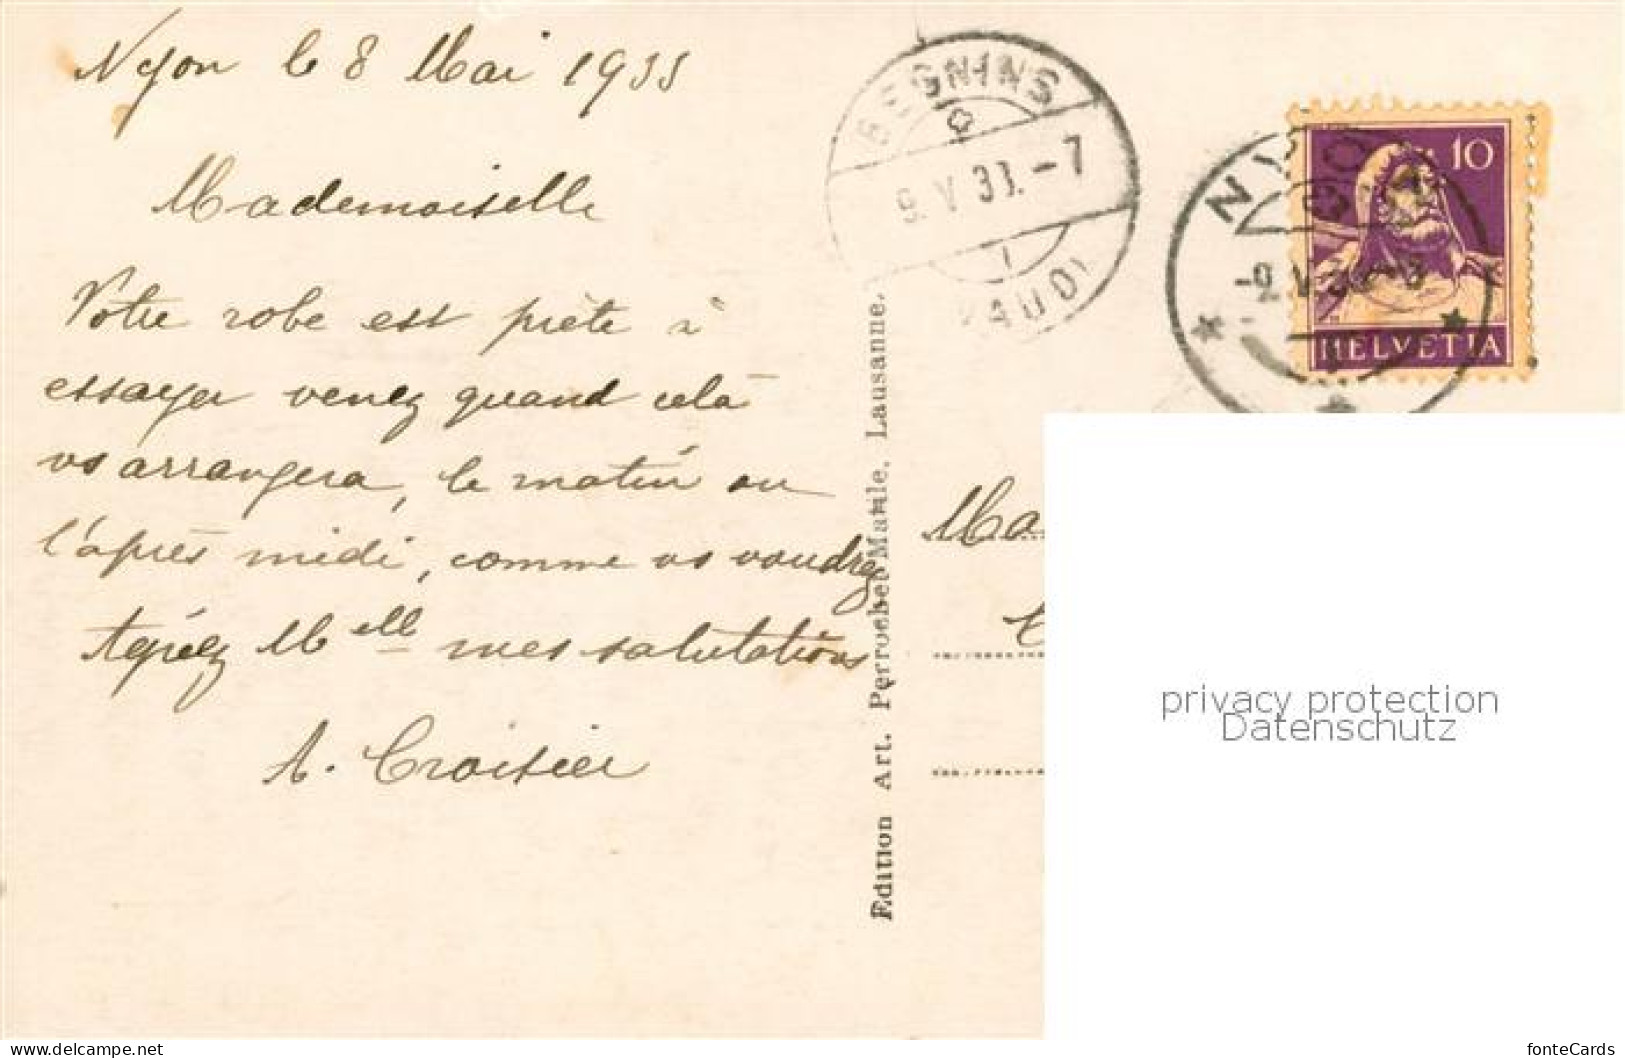 Nyon le 8 Mai 1933
Mademoiselle
Votre robe est prète à
essayer venez quand celà
vs arrangera, le matin ou
l'après midi, comme vs voudrez
Agréez Melle mes salutations
A. Croisier
Edition Art. Perrochet-Matile, Lausanne.
BEGNINS
9. V 33.-7
(VAUD)
NYON
-9. V 3
10
HELVETIA
Ma
privacy protection
Datenschutz
delcampe.net
fonteCards